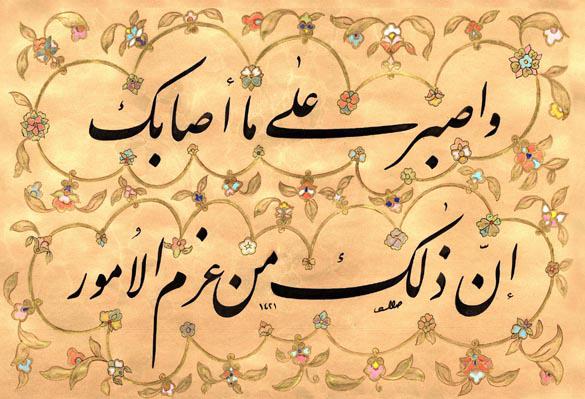 واصبر علىٰ ما أصابك
إنّ ذٰلك من عزم الاُمور
١٤٢١